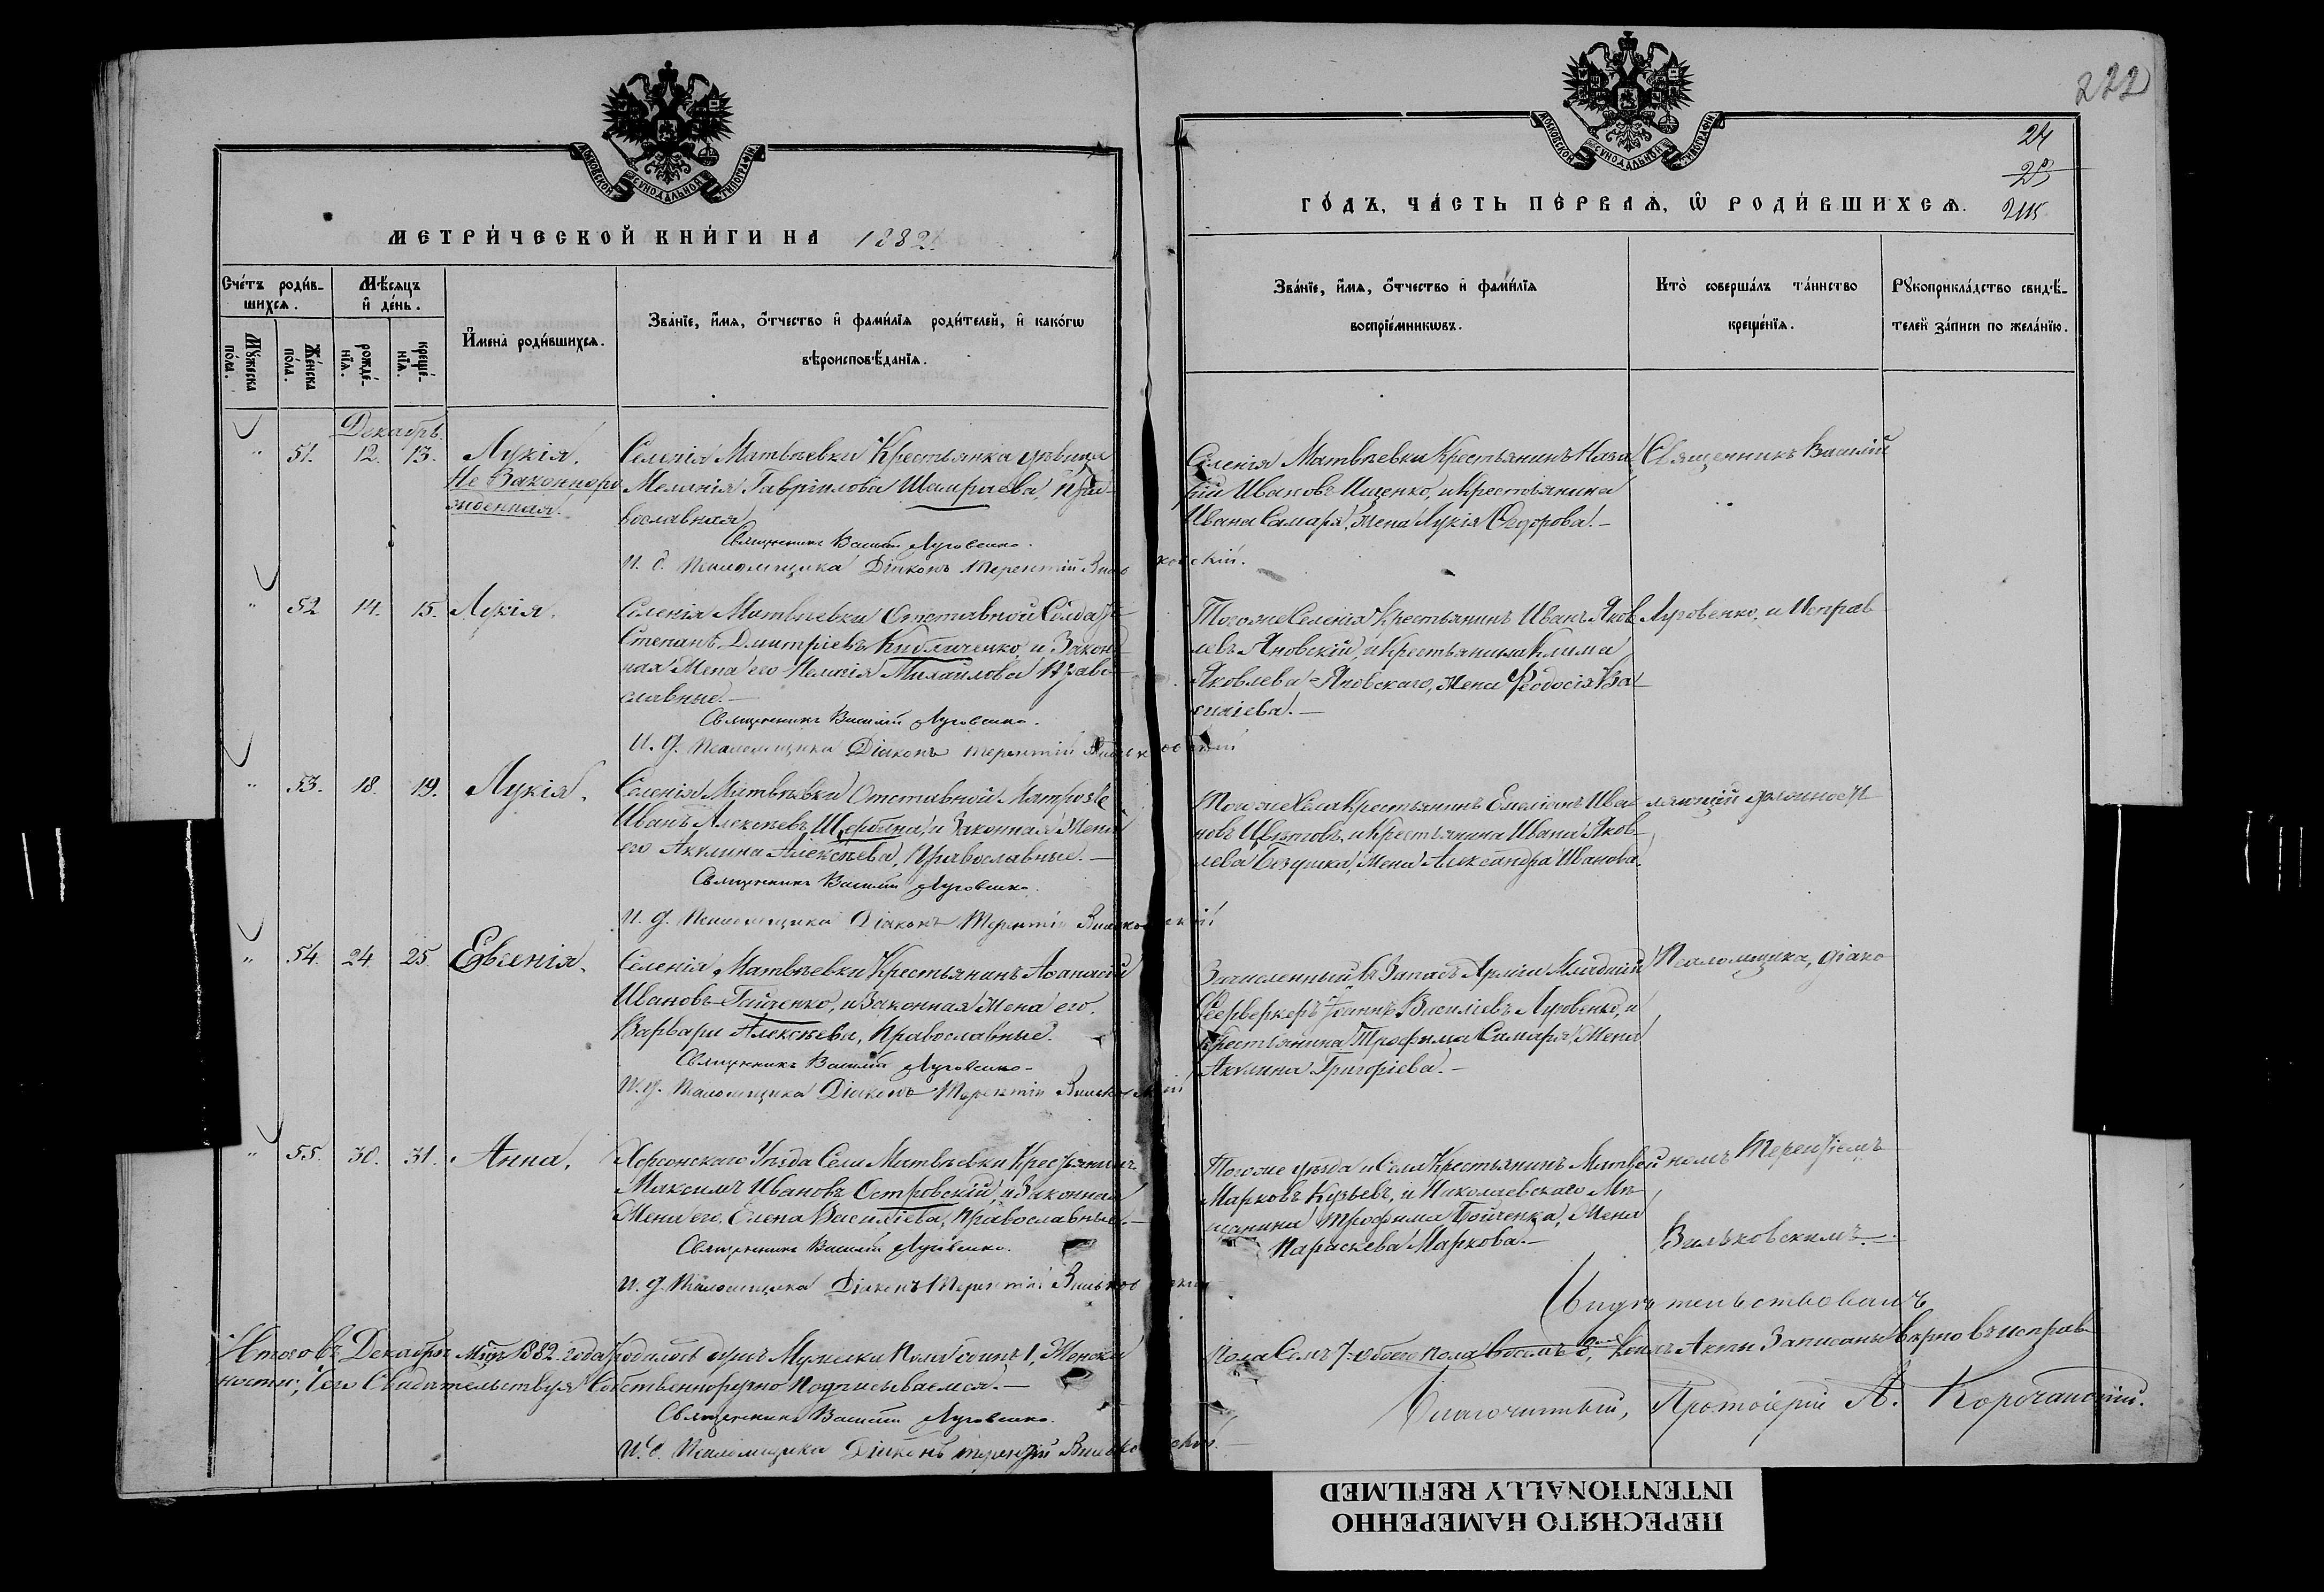 222
МОСКОВСКОЙ СУНОДАЛЬНОЙ ТИПОГРАФІИ
МЕТРИ́ЧЕСКОЙ КНИ́ГИ НА 1882.
Сче́тъ роди́в-
шихсѧ.
Мѣ́сѧцъ
и҆ де́нь.
Мꙋ́жеска
по́ла.
Же́нска
по́ла.
рожде́-
нїѧ.
креще́-
нїѧ.
И҆мена̀ роди́вшихсѧ.
Зва́нїе, и҆́мѧ, ѻ҆́тчество и҆ фами́лїѧ роди́телей, и҆ како́гѡ
вѣроисповѣ́данїѧ.
Декабрь.
" 51. 12. 13. Лукія.
Не Законноро
жденная.
Селенія Матвѣевки Крестьянка дѣвица
Меланія Гавріилова Шамраева, Пра-
вославная
Священникъ Василій Луговенко.
И. д. Псаломщика Діаконъ Терентій Вильковскій.
" 52 14. 15. Лукія.
Селенія Матвѣевки Отставной Солдатъ
Степанъ Дмитріевъ и Закон-
ная Жена его Михайлова Право-
славные.—
Священникъ Василій Луговенко.
И. д. Псаломщика Діаконъ Терентій Вильковскій
" 53. 18. 19. Лукія.
Селенія Матвѣевки Отставной Матрозъ
Иванъ Алексѣевъ Щербина и Законная Жена
его Акилина Алексѣева, Православные.—
Священникъ Василій Луговенко.
И. д. Псаломщика Діаконъ Терентій Вильковскій
" 54. 24 25 Евгенія.
Селенія Матвѣевки Крестьянинъ Аѳанасій
Ивановъ Гайченко, и Законная Жена его
Варвара Алексѣева, Православные.
Священникъ Василій Луговенко-
И. д. Псаломщика Діаконъ Терентій Вильковскій
" 55. 30. 31. Анна.
Херсонскаго Уѣзда Села Матвѣевки Крестьянинъ
Максимъ Ивановъ Островскій, и Законная
Жена его Елена Василіева, Православные.—
Священникъ Василій Луговенко.
И. д. Псаломщика Діаконъ Терентій Вильковскій
Итого въ Декабрѣ Мцѣ 1882 года родилось душъ Мужеска Пола одинъ 1, Женска
ности, Свидѣтельствуя Собственноручно Подписываемся.—
Священникъ Василій Луговенко.
И. д. Псаломщика Діаконъ Терентій Вильковскій.
МОСКОВСКОЙ СУНОДАЛЬНОЙ ТИПОГРАФІИ
24
25
ГО́ДЪ, ЧА́СТЬ ПЕ́РВАѦ, Ѡ҆ РОДИ́ВШИХСѦ.
Зва́нїе, и҆́мѧ, ѻ҆́тчество и҆ фами́лїѧ
воспрїе́мникѡвъ.
Кто̀ соверша́лъ та́инство
креще́нїѧ.
Рꙋкоприкла́дство свидѣ́-
телей за́писи по жела́нїю.
Селенія Матвѣевки Крестьянинъ Наза-
рій Ивановъ Ищенко, и Крестьянина
Ивана Самаря, Жена Лукія Ѳедорова.—
Тогоже Селенія Крестьянинъ Иванъ Яков-
левъ Яновскій, и Крестьянина Клима
Яковлева Яновскаго, Жена Феодосія Ва-
силіева.—
Тогоже Села Крестьянинъ Емеліанъ Ива-
новъ Цвѣтовъ, и Крестьянина Ивана Яков-
лева Бездушка, Жена Александра Иванова.
Зачисленный въ Запасъ Арміи Младшій
Феерверкеръ Іоаннъ Василіевъ Луговенко, и
Крестьянина Трофима Самаря, Жена
Акилина Григоріева.—
Тогоже уѣзда и Села Крестьянинъ Матвей
Марковъ Кузьевъ, и Николаевскаго Мѣ-
щанина Трофима Бойченка, Жена
Параскева Маркова.—
Священникъ Василій
Луговенко, и Исправ-
ляющій должность
Псаломщика, діако-
номъ Терентіемъ
Вильковскимъ.
Свидѣтельствовалъ
пола Семъ 7. обоего пола восемъ 8, коихъ Акты Записаны вѣрно въ исправ-
Благочинный, Протоіерей А. Корчанскій.
ПЕРЕСНЯТО НАМЕРЕННО
INTENTIONALLY REFILMED